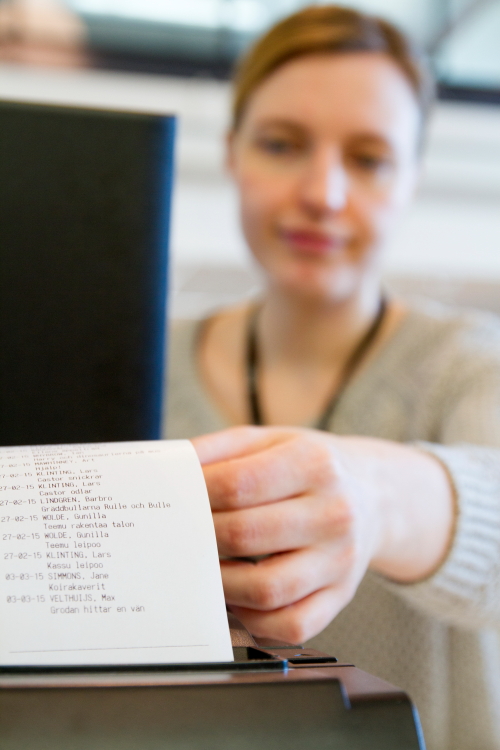 27-02-15 KLINTING, Lars
Castor snickrar
27-02-15 KLINTING, Lars
Castor odlar
27-02-15 LINDGREN, Barbro
Gräddbullarna Rulle och Bulle
27-02-15 WOLDE, Gunilla
Teemu rakentaa talon
27-02-15 WOLDE, Gunilla
Teemu leipoo
27-02-15 KLINTING, Lars
Kassu leipoo
03-03-15 SIMMONS, Jane
Koirakaverit
03-03-15 VELTHUIJS, Max
Grodan hittar en vän